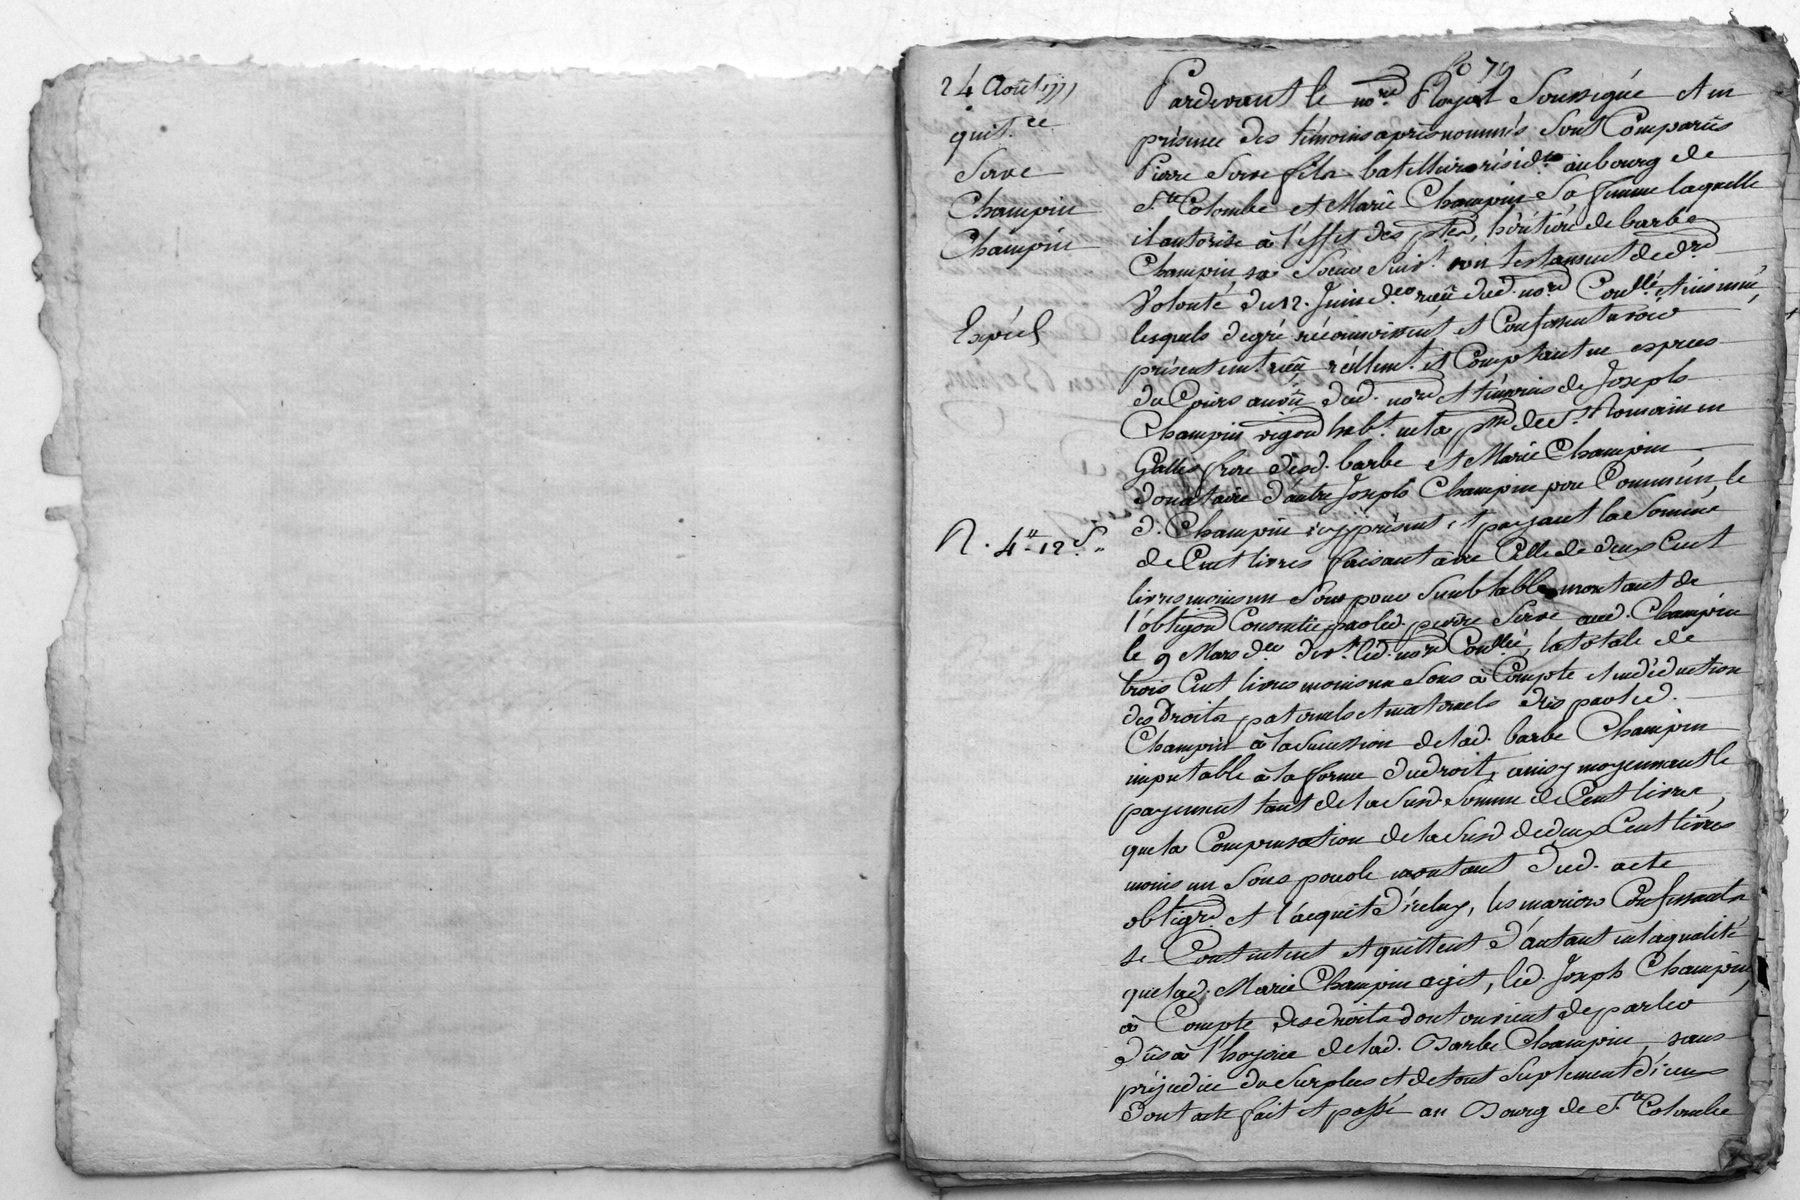 fo 79
24 Aout 1771
quit.ce
Serve
Champin
Champin
Expéd
R. 4tt 12 s.
Pardevant le no.re Royal Soussigné et en
présence des témoins après nommés sont Comparus
Pierre Serve fils batellier résid.t au bourg de
S.te Colombe et Marie Champin sa femme laquelle
il autorise à l'effet des ptes, héritière de barbe
Champin, sa Soeur Suiv.t son testament de d.re
Volonté du 12. Juin d.er reçu dud. no.re Coullé et insinué,
lesquels degré reconnoissent et Confessent avoir
présentement reçu réellem.t et Comptant en espèces
du Cours au vû dud. no.re et témoins de Joseph
Champin vigon hab.t en la p.sse de S.t Romain en
Galles frère desd. barbe et Marie Champin
donataire d'autre Joseph Champin père Commun, le
d. Champin icy présent et payant la Somme
de Cent livres faisant avec Celle de deux Cent
livres moins un Sous pour Semblable montant de
l'obligõn Consentie par led. pierre Serve aud. Champin
le 9 Mars d.er dev.t led. no.re Coullé, la totale de
trois Cent livres moins un Sous à Compte et en déduction
des Droits paternels et maternels dûs par led.
Champin à la Succession de lad. barbe Champin
imputable à la forme du droit, ainsy moyennant le
payement tant de la Susd. Somme de Cent livres,
que la Compensation de la Susd. de deux Cent livres
moins un Sous pour le montant dud. acte
obligré et l'acquit d'iceluy, les mariés Confessants
se Contentent et quittent d'autant en la qualité
que lad. Marie Champin agit, led. Joseph Champin,
à Compte des droits dont on vient de parler
dûs à l'hoyrie de lad. Barbe Champin, sans
préjudice du Surplus et de tout Suplement d'iceux
Dont acte fait et passé au Bourg de S.te Colombe